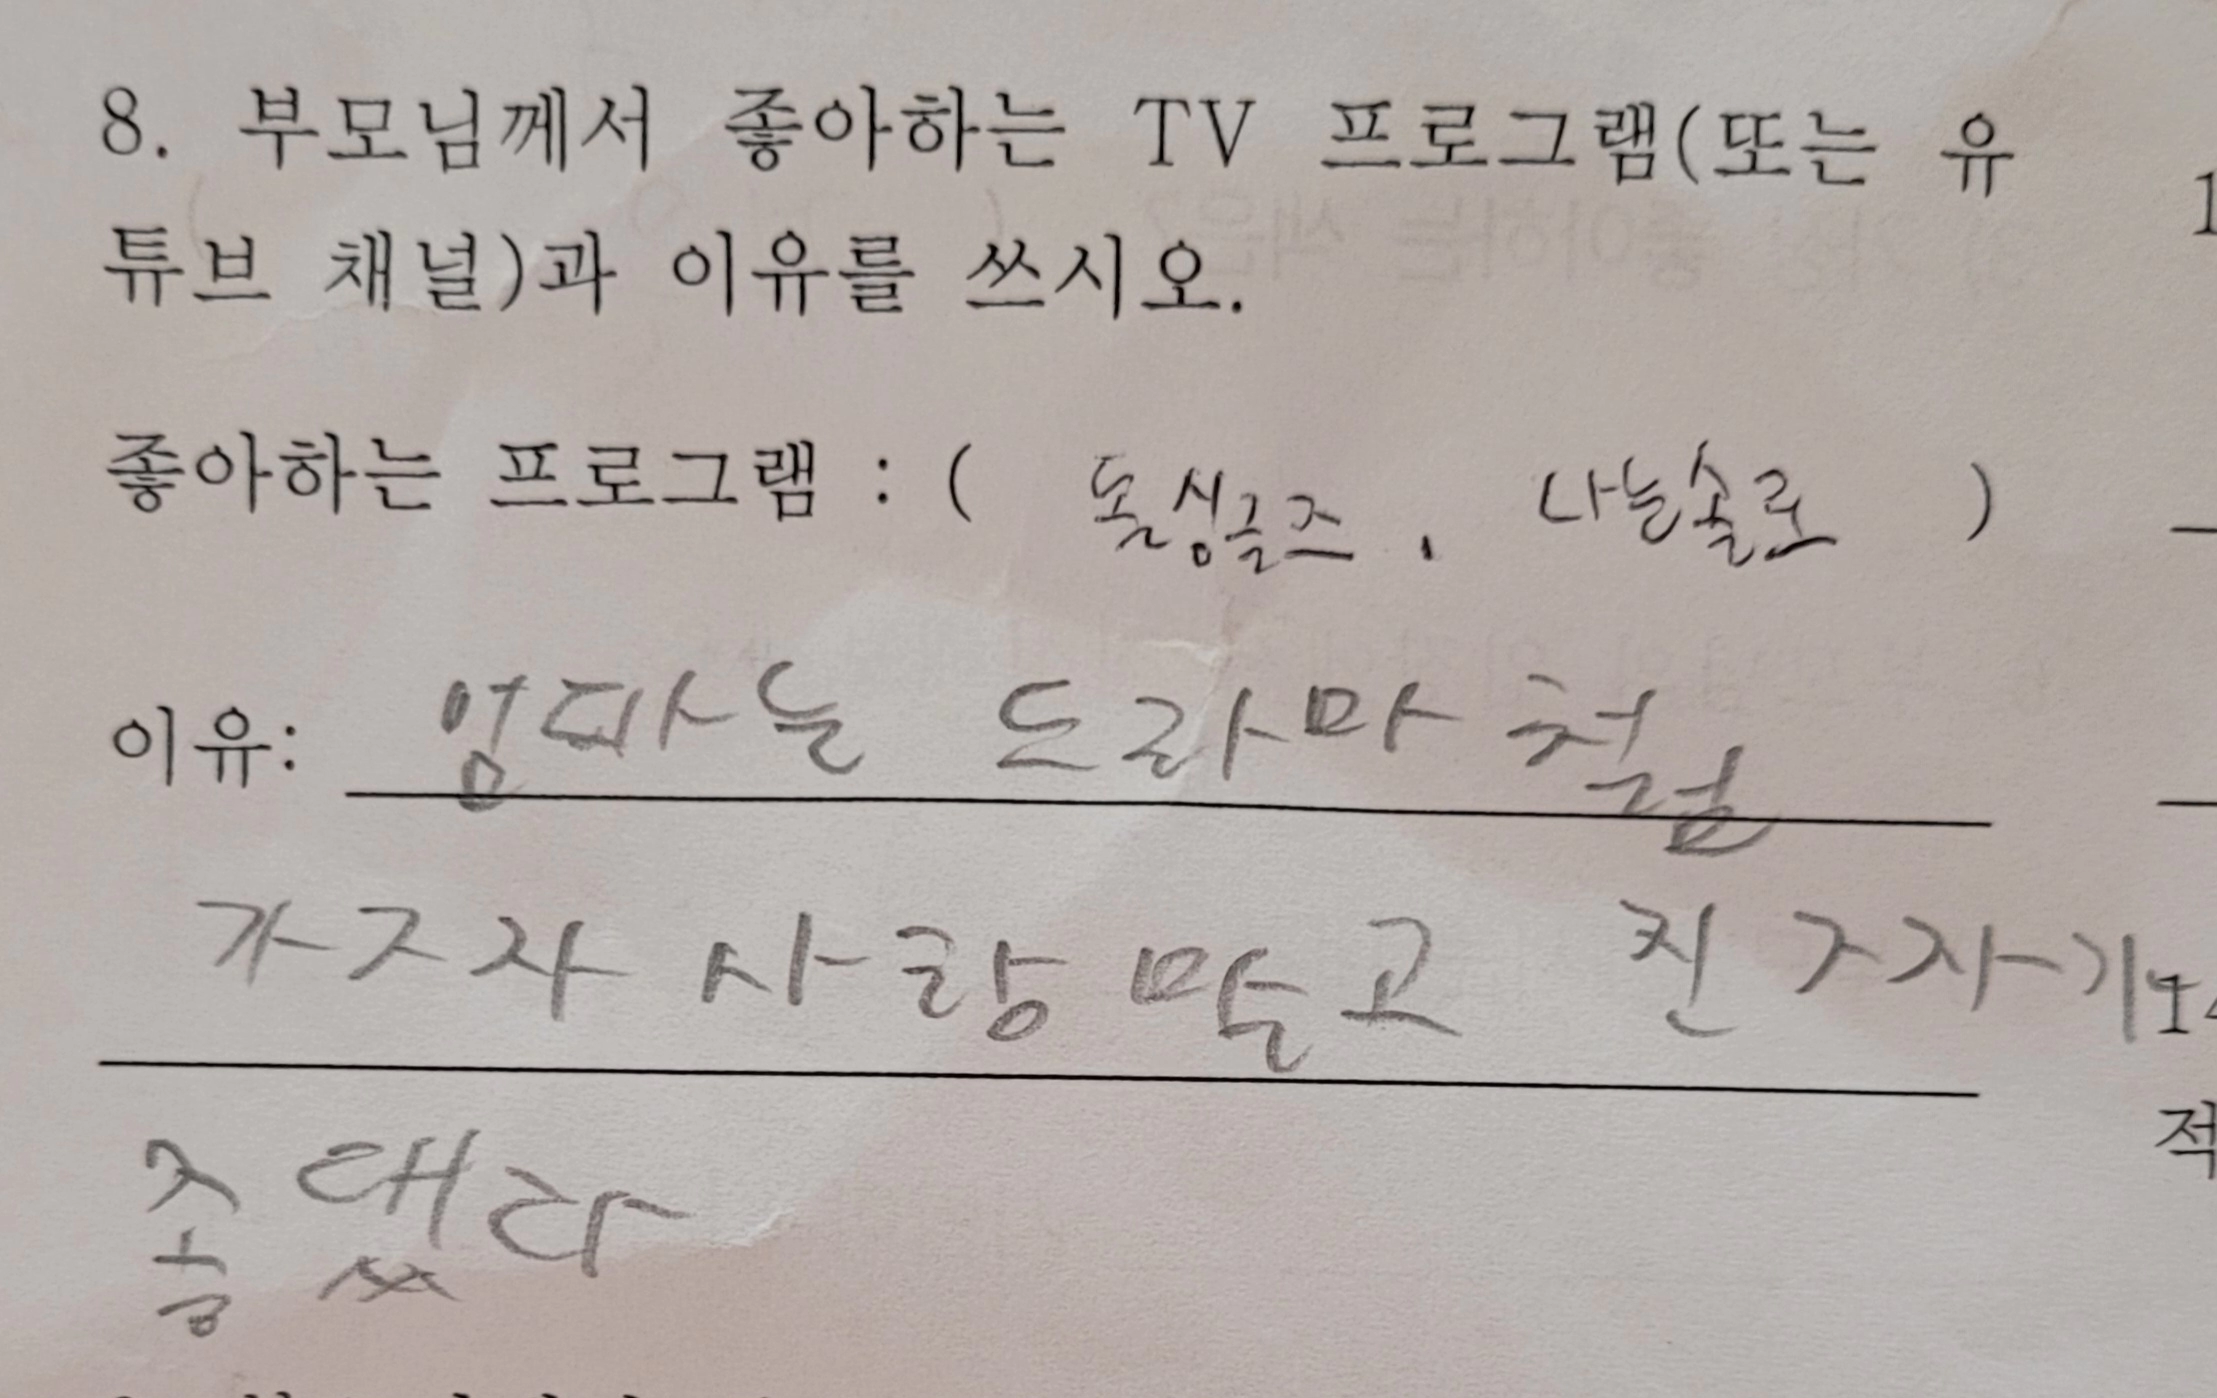 8. 부모님께서 좋아하는 TV 프로그램(또는 유
튜브 채널)과 이유를 쓰시오.
좋아하는 프로그램 : ( 돌싱글즈, 나는솔로 )
이유: 엄마는 드라마 처럼
가짜 사랑 말고 진짜가
좋댔다
적